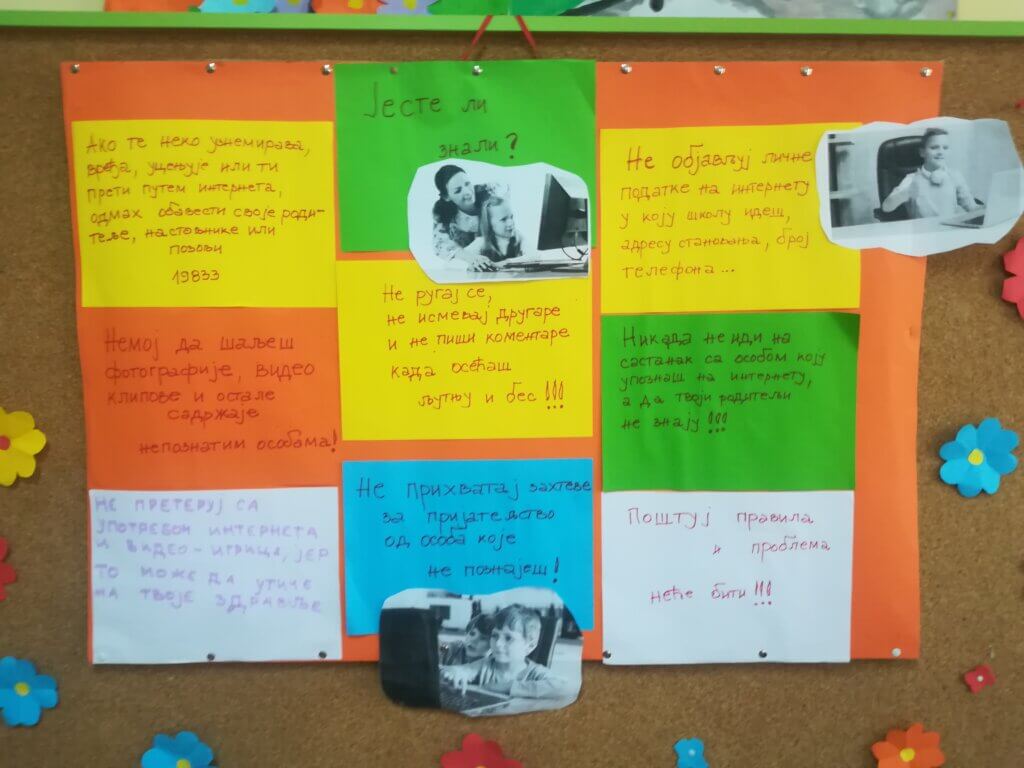 Јесте ли
знали?
Ако те неко узнемирава,
вређа, уцењује или ти
прети путем интернета,
одмах обавести своје роди-
теље, настовнике или
позови
19833
Не ругај се,
не исмевај другаре
и не пиши коментаре
када осећаш
љутњу и бес!!!
Не објављуј личне
податке на интернету
у коју школу идеш,
адресу становања, број
телефона...
Немој да шаљеш
фотографије, видео
клипове и остале
садржаје
непознатим особама!
Никада не иди на
састанак са особом коју
упознаш на интернету,
а да твоји родитељи
не знају!!!
Не претеруј са
употребом интернета
и видео-игрица, јер
то може да утиче
на твоје здравље
Не прихватај захтеве
за пријатељство
од особа које
не познајеш!
Поштуј правила
и проблема
неће бити!!!